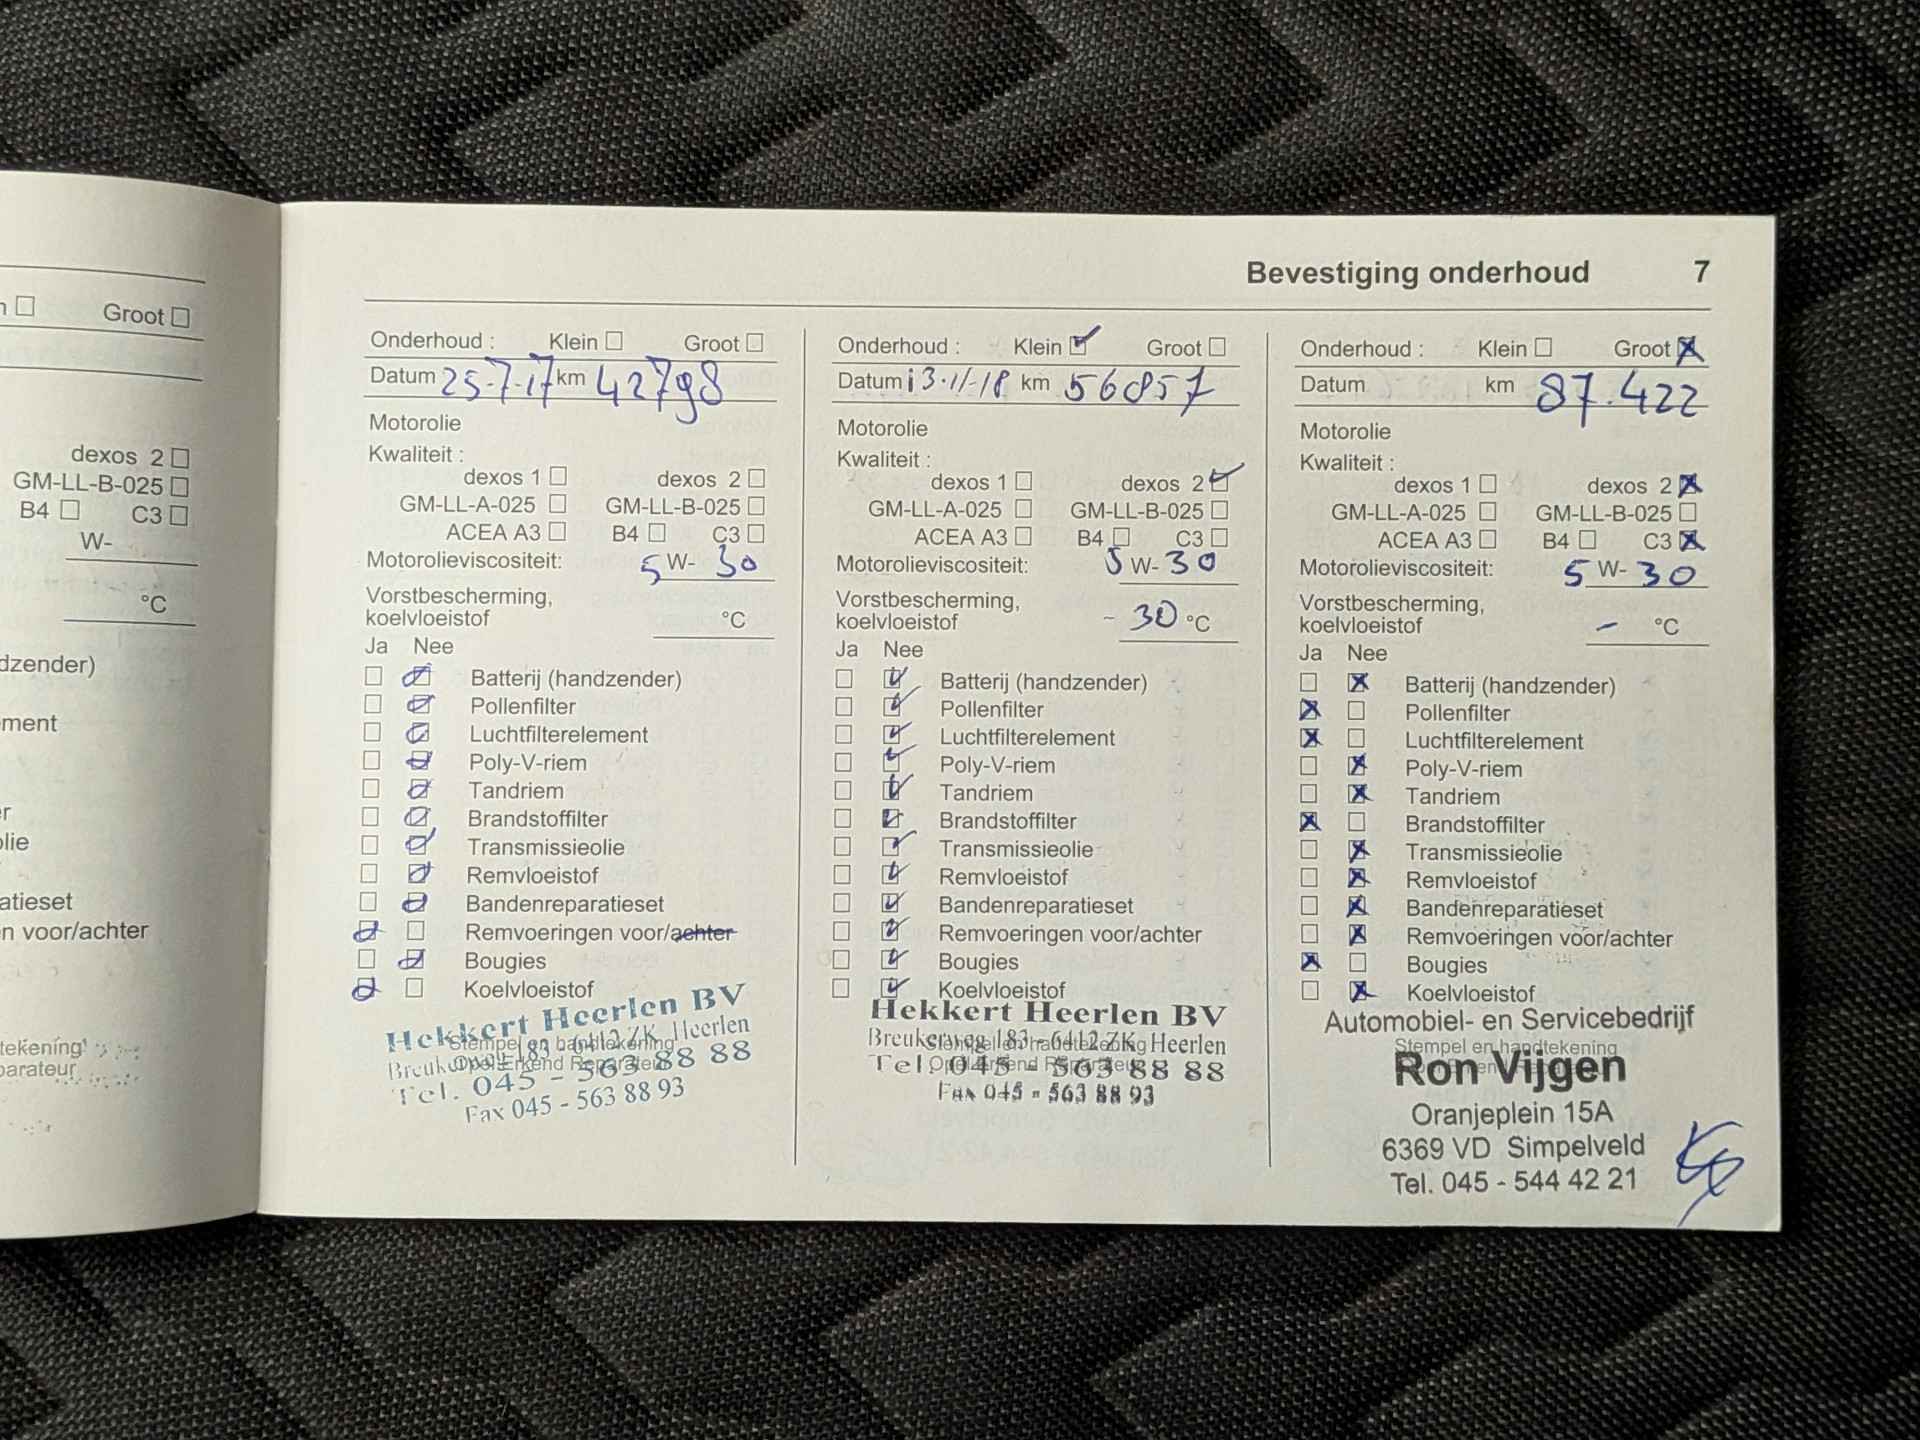 Groot
dexos 2
GM-LL-B-025
B4 C3
W-
°C
dzender)
ement
olie
atieset
n voor/achter
tekening
parateur
Bevestiging onderhoud 7
Onderhoud : Klein Groot
Datum 25-7-17 km 42798
Motorolie
Kwaliteit :
dexos 1 dexos 2
GM-LL-A-025 GM-LL-B-025
ACEA A3 B4 C3
Motorolieviscositeit: 5 W- 30
Vorstbescherming,
koelvloeistof °C
Ja Nee
Batterij (handzender)
Pollenfilter
Luchtfilterelement
Poly-V-riem
Tandriem
Brandstoffilter
Transmissieolie
Remvloeistof
Bandenreparatieset
Remvoeringen voor/achter
Bougies
Koelvloeistof
Hekkert Heerlen BV
Stempel en handtekening
Breukerweg 183 - 6412 ZK Heerlen
Opel Erkend Reparateur
Tel. 045 - 563 88 88
Fax 045 - 563 88 93
Onderhoud : Klein Groot
Datum 13-11-18 km 56857
Motorolie
Kwaliteit :
dexos 1 dexos 2
GM-LL-A-025 GM-LL-B-025
ACEA A3 B4 C3
Motorolieviscositeit: 5 W- 30
Vorstbescherming,
koelvloeistof - 30 °C
Ja Nee
Batterij (handzender)
Pollenfilter
Luchtfilterelement
Poly-V-riem
Tandriem
Brandstoffilter
Transmissieolie
Remvloeistof
Bandenreparatieset
Remvoeringen voor/achter
Bougies
Koelvloeistof
Hekkert Heerlen BV
Breukerweg 183 - 6412 ZK Heerlen
Stempel en handtekening
Opel Erkend Reparateur
Tel 045 - 563 88 88
Fax 045 - 563 88 93
Onderhoud : Klein Groot
Datum km 87.422
Motorolie
Kwaliteit :
dexos 1 dexos 2
GM-LL-A-025 GM-LL-B-025
ACEA A3 B4 C3
Motorolieviscositeit: 5 W- 30
Vorstbescherming,
koelvloeistof - °C
Ja Nee
Batterij (handzender)
Pollenfilter
Luchtfilterelement
Poly-V-riem
Tandriem
Brandstoffilter
Transmissieolie
Remvloeistof
Bandenreparatieset
Remvoeringen voor/achter
Bougies
Koelvloeistof
Automobiel- en Servicebedrijf
Stempel en handtekening
Ron Vijgen
Oranjeplein 15A
6369 VD Simpelveld
Tel. 045 - 544 42 21